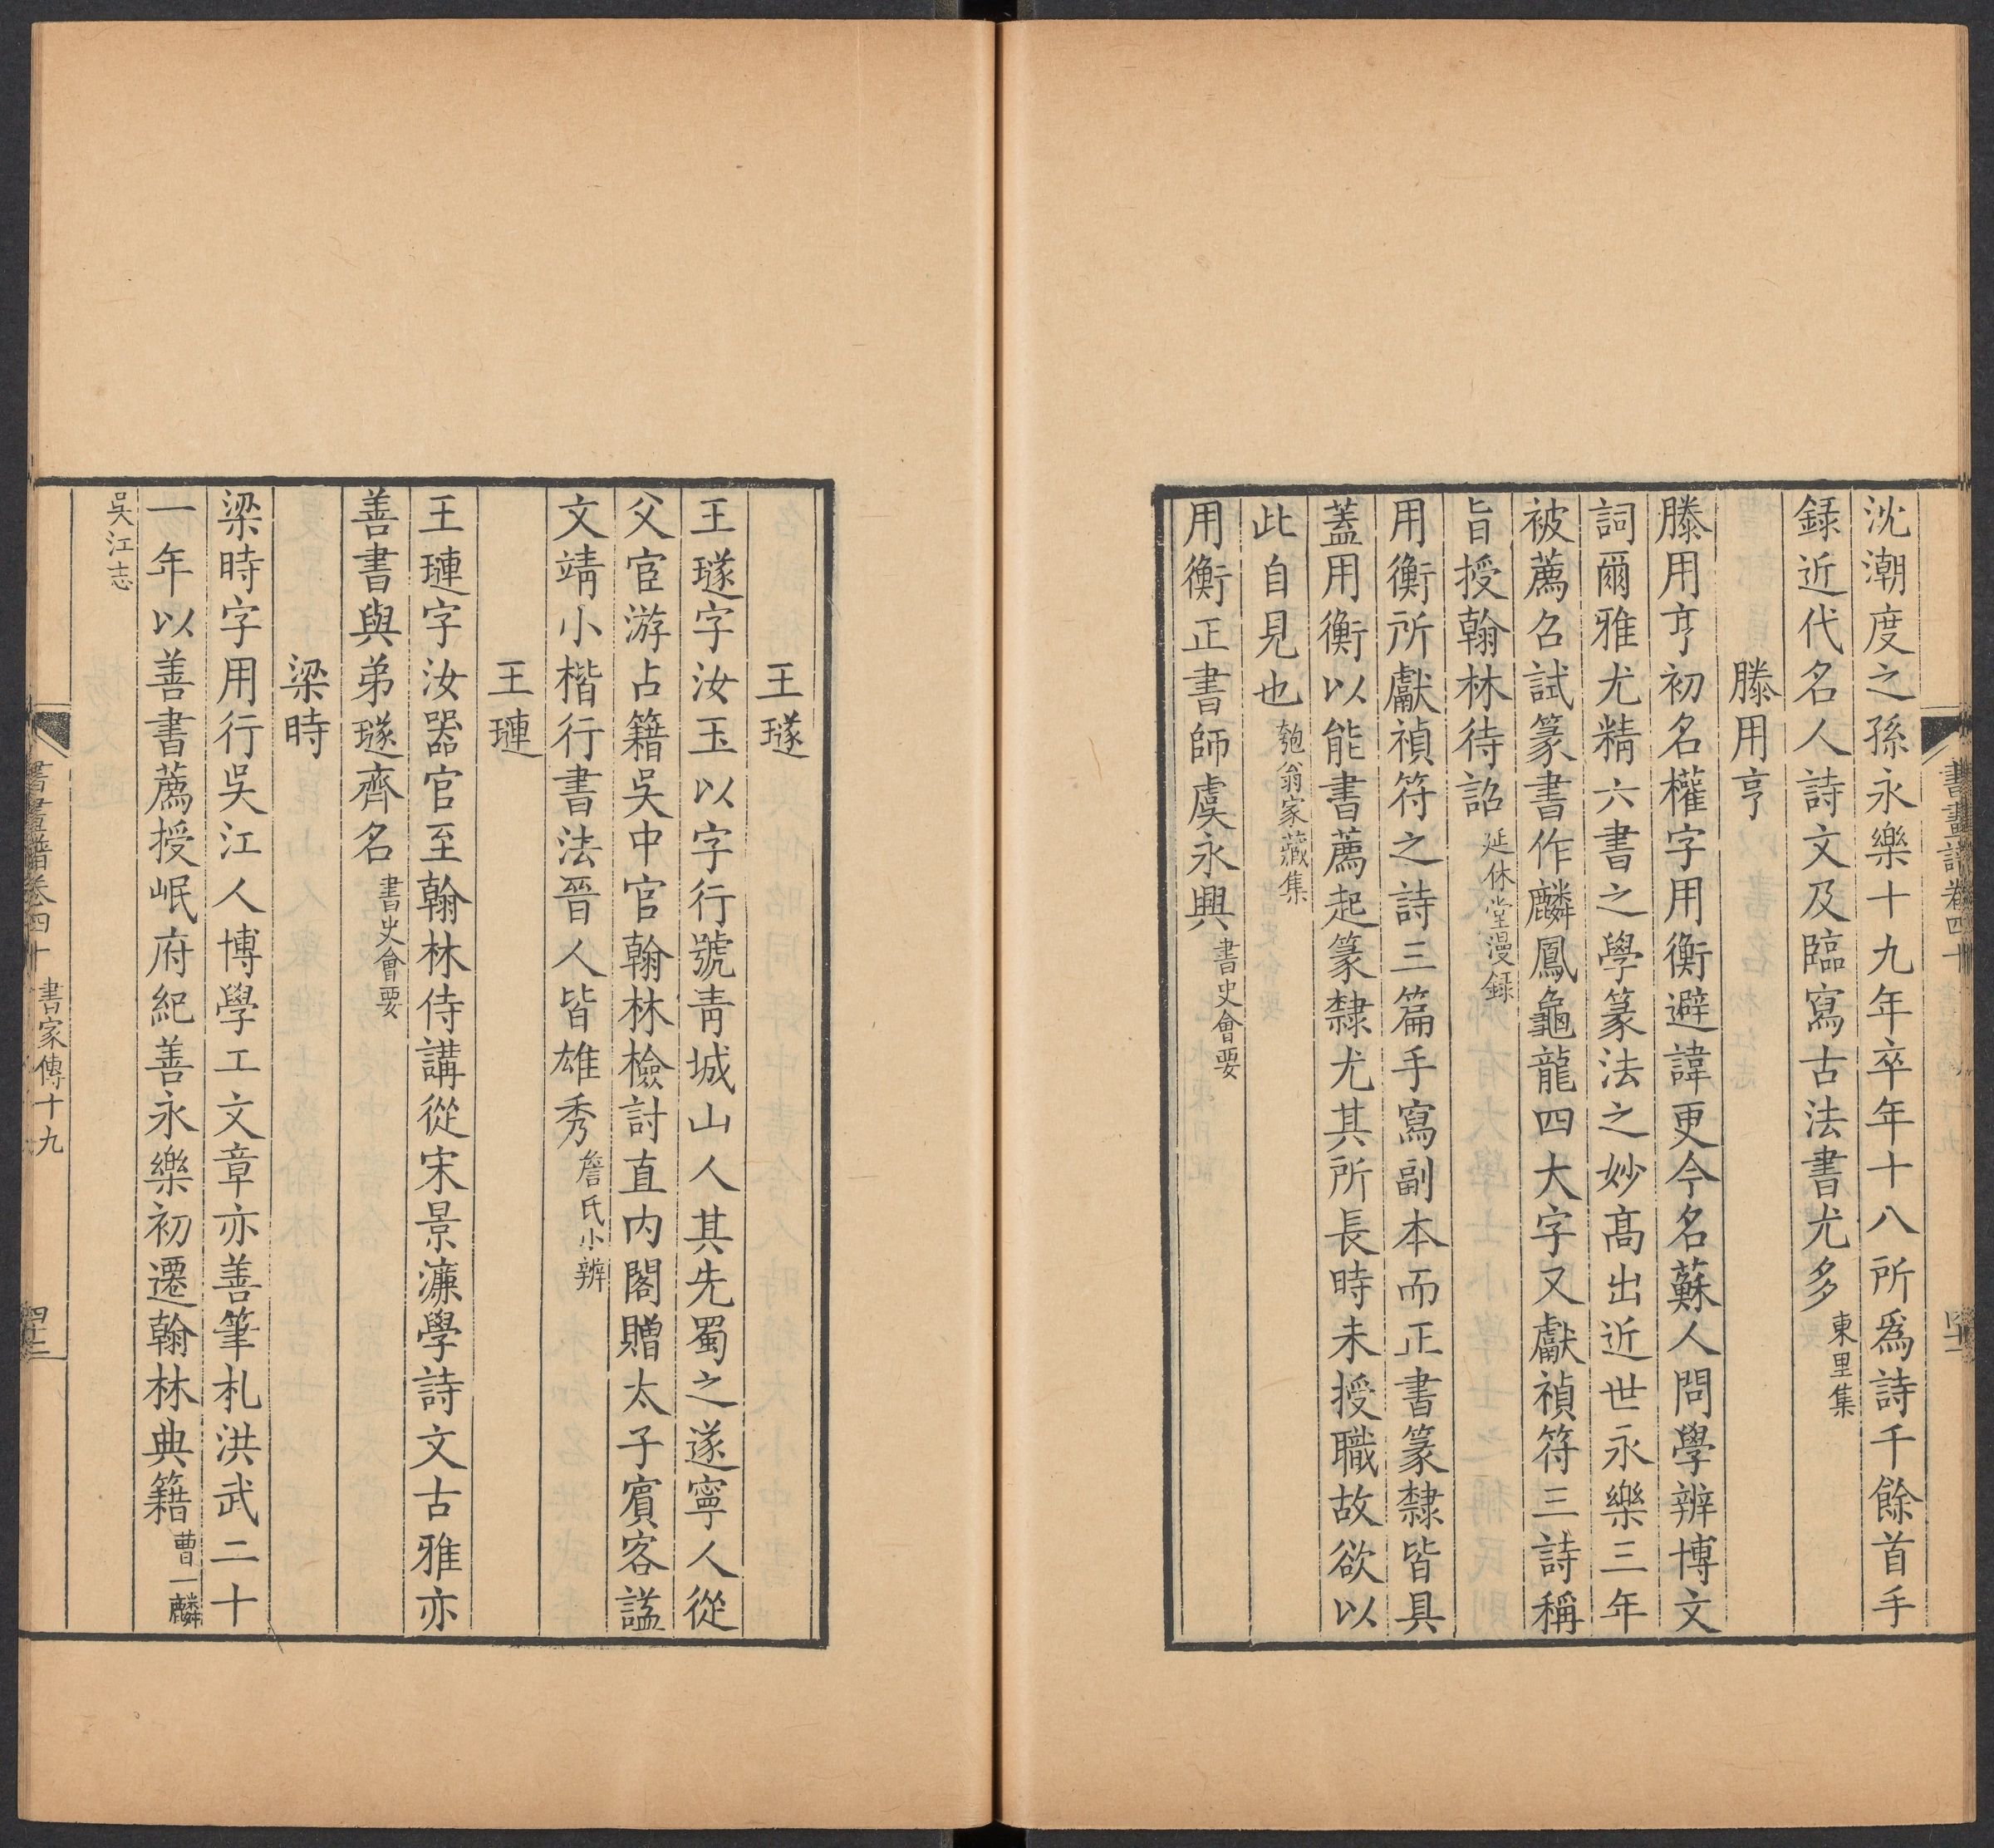 沈潮度之孫永樂十九年卒年十八所爲詩千餘首手
錄近代名人詩文及臨寫古法書尤多東里集
滕用亨
滕用亨初名權字用衡避諱更今名蘇人問學辨博文
詞爾雅尤精六書之學篆法之妙高出近世永樂三年
被薦召試篆書作麟鳳龜龍四大字又獻禎符三詩稱
旨授翰林待詔延休堂漫錄
用衡所獻禎符之詩三篇手寫副本而正書篆隸皆具
蓋用衡以能書薦起篆隸尤其所長時未授職故欲以
此自見也匏翁家藏集
用衡正書師虞永興書史會要
王璲
王璲字汝玉以字行號青城山人其先蜀之遂寧人從
父宦游占籍吳中官翰林檢討直內閣贈太子賓客諡
文靖小楷行書法晉人皆雄秀詹氏小辨
王璉
王璉字汝器官至翰林侍講從宋景濂學詩文古雅亦
善書與弟璲齊名書史會要
梁時
梁時字用行吳江人博學工文章亦善筆札洪武二十
一年以善書薦授岷府紀善永樂初遷翰林典籍曹一麟
吳江志
書畫譜卷四十 書家傳十九